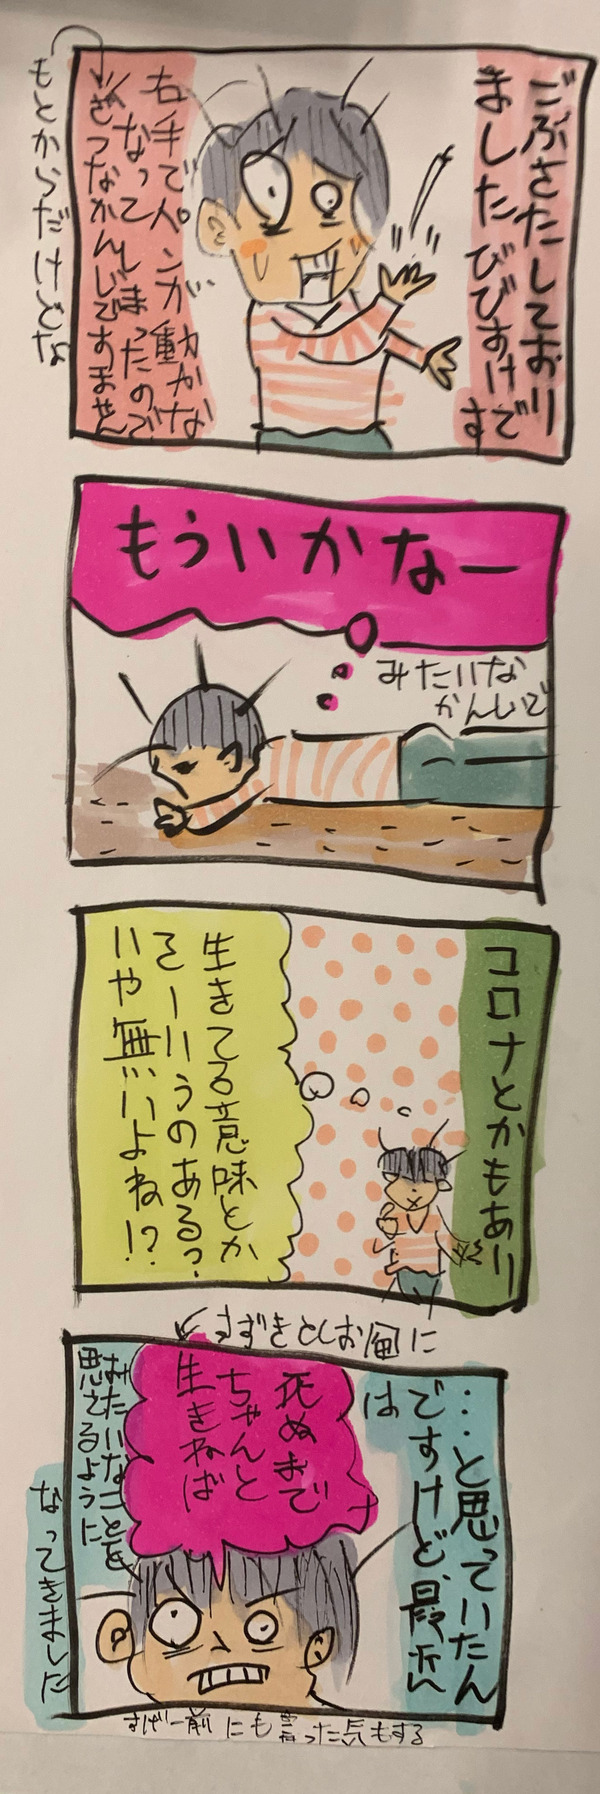 ごぶさたしており
ました びびすけで
す
右手でペンが動かな
くなってしまったので
ぎこちないかんじですません
もとからだけどな
もういかなー
みたいな
かんじで
コロナとかもあり
生きてる意味とか
そーいうのある?
いや無いよね!?
すずきとしお風に
…と思っていたん
ですけど、最近
は
死ぬまで
ちゃんと
生きねば
みたいなことを
思えるように
なってきました
すげー前にも言った気もする